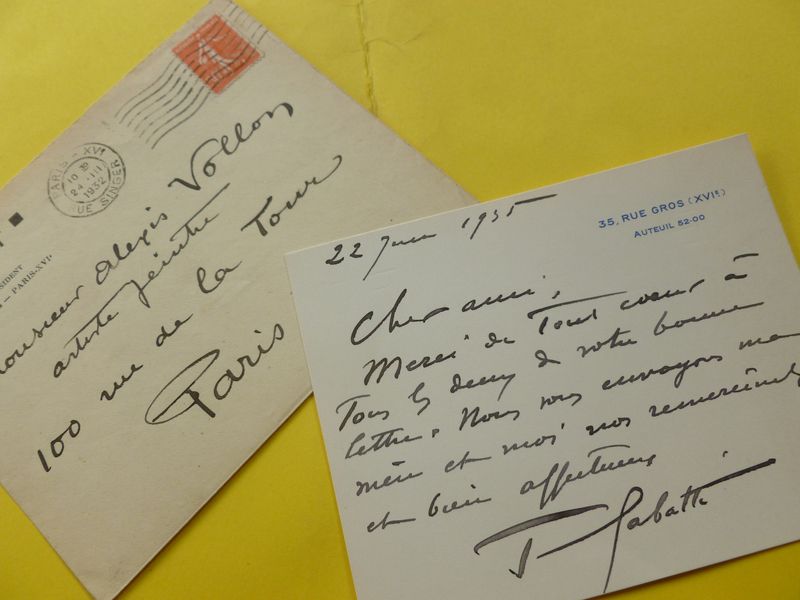 PARIS - XVI
10
24 - III
1932
RUE SINGER
SIDENT
— PARIS-XVIe
Monsieur Alexis Vollon
artiste peintre
100 rue de la Tour
Paris
35, RUE GROS (XVIe)
AUTEUIL 52-00
22 Juin 1935
Cher ami,
Merci de Tout coeur à
Tous les deux de votre bonne
lettre. Nous vous envoyons ma
mère et moi nos remerciements
et bien affectueux